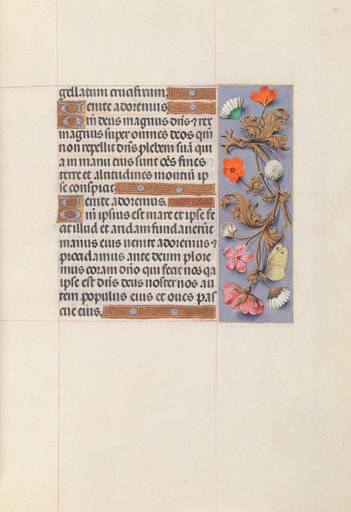 gellatum crucifixum.
Venite adoremus
Qm̄ deus magnus dn̄s ⁊ rex
magnus super omnes deos qm̄
non repellit dn̄s plebem suā qm̄
a in manu eius sunt oēs fines
terre et altitudines montiū ip
se conspicit
Venite adoremus.
Qm̄ ipsius est mare et ipse fe
cit illud et aridam fundauerūt
manus eius uenite adoremus ⁊
procidamus ante deum plore
mus coram dn̄o qui fecit nos qa
ipse est dn̄s deus noster nos au
tem populus eius et oues pas
cue eius.